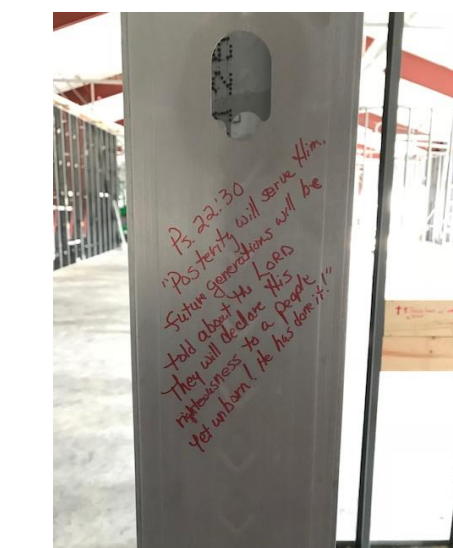 Ps. 22:30
"Posterity will serve Him.
future generations will be
told about the LORD
They will declare His
righteousness to a people
yet unborn! He has done it!"